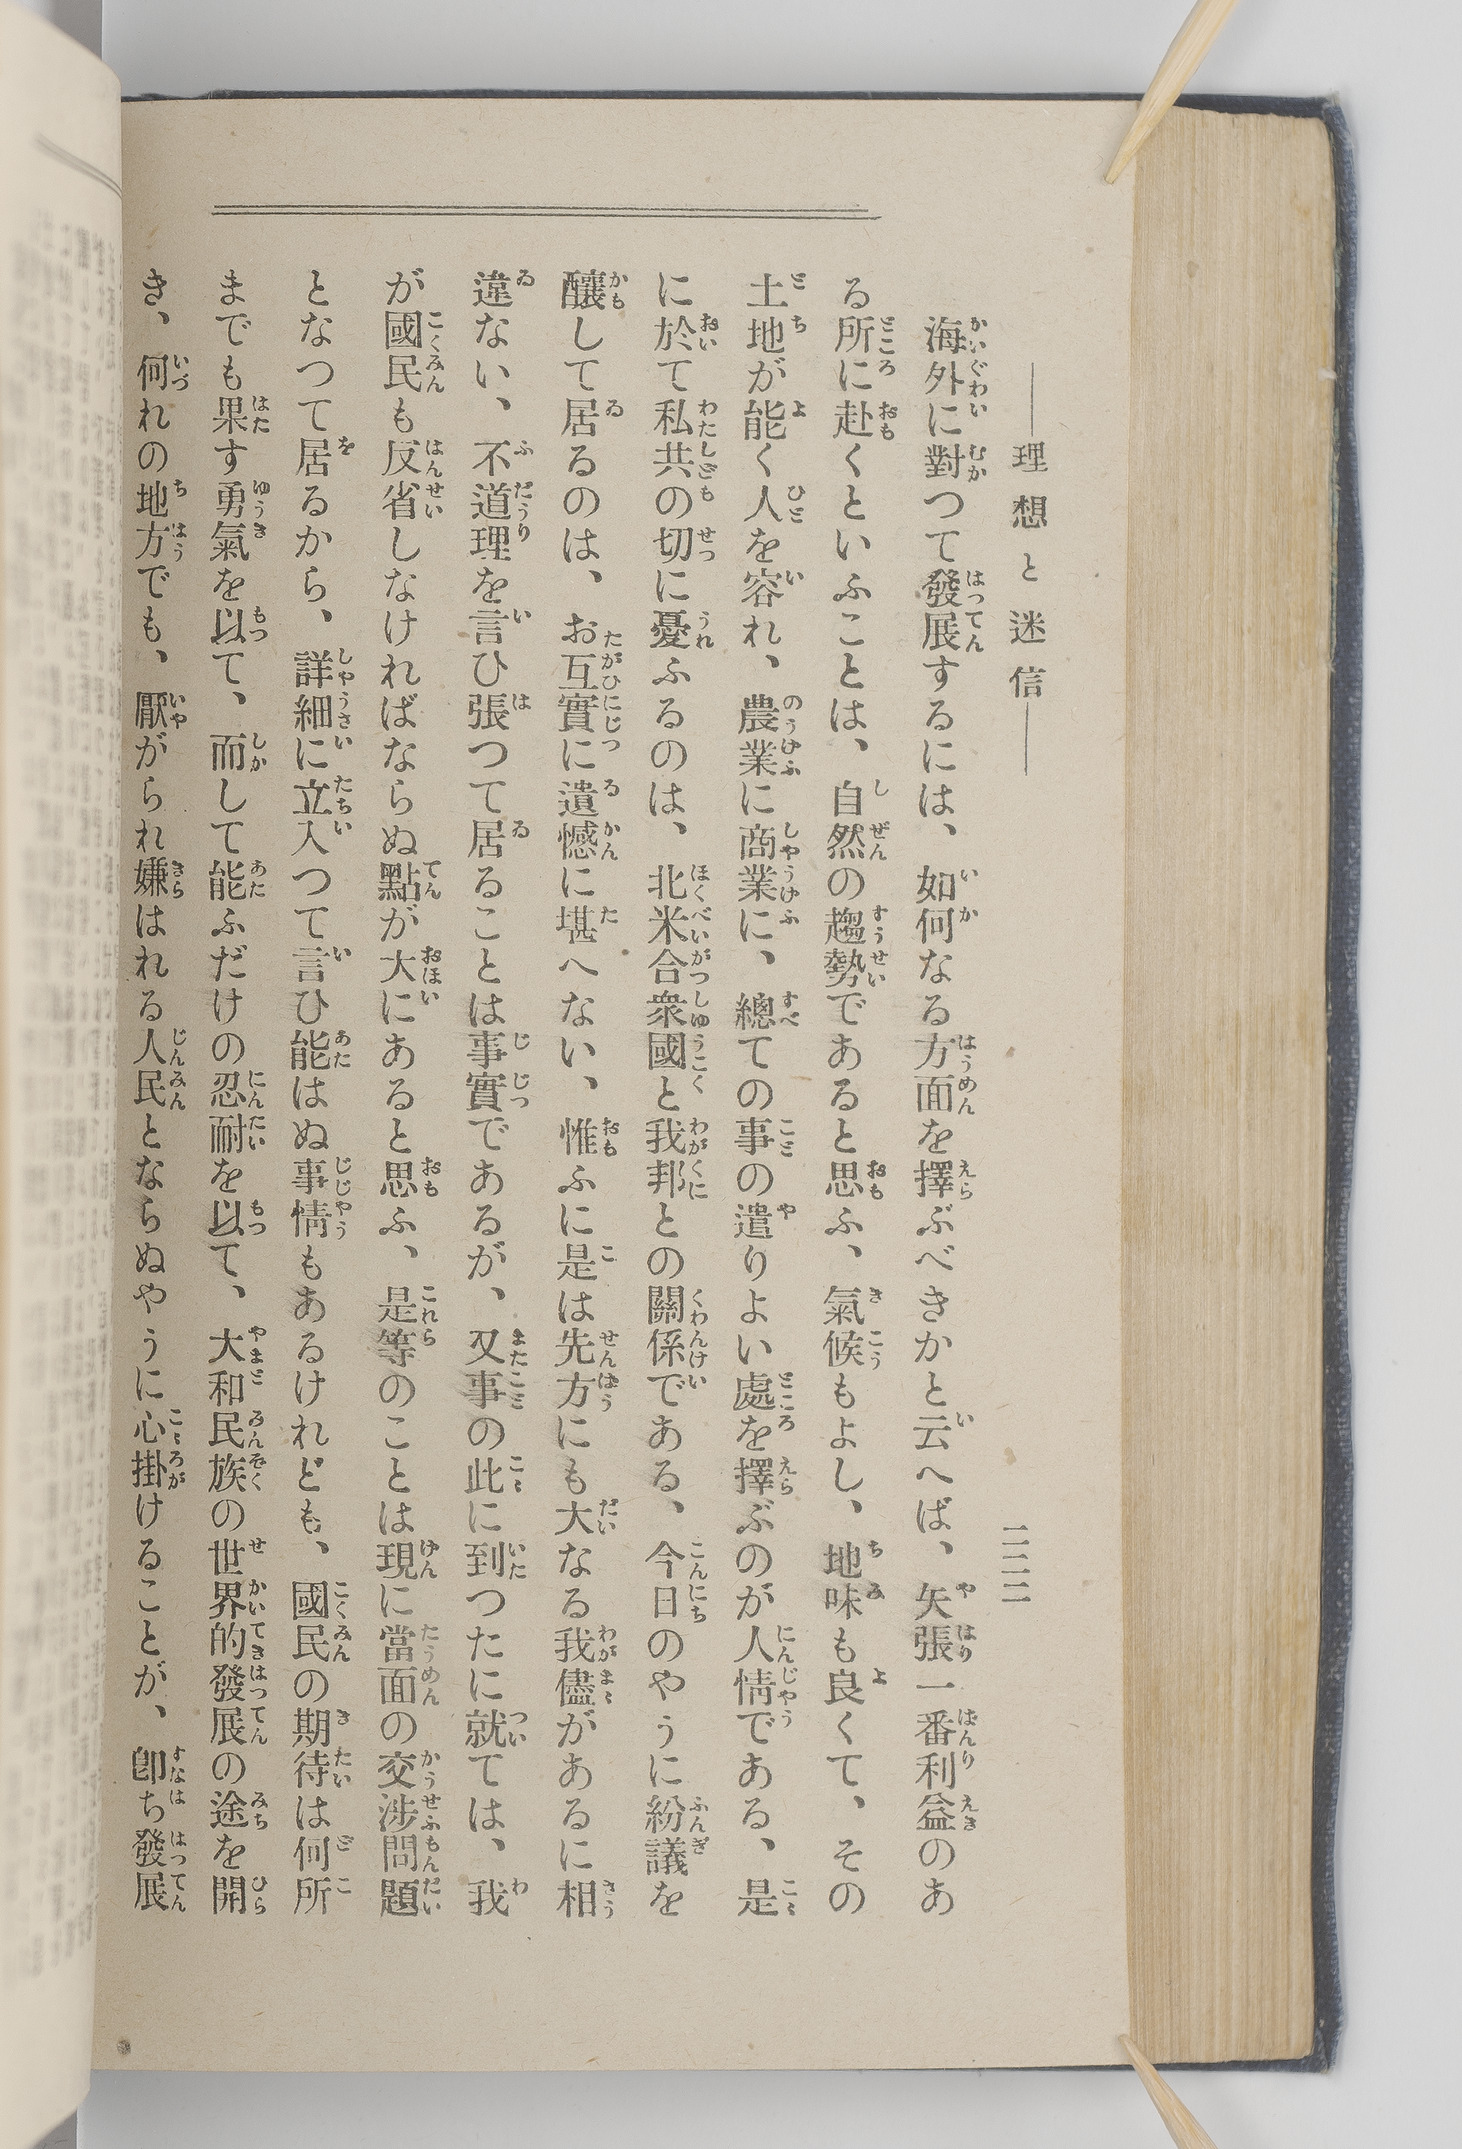 ――理想と迷信――
二二二
海外に對つて發展するには、如何なる方面を擇ぶべきかと云へば、矢張一番利益のあ
る所に赴くといふことは、自然の趨勢であると思ふ、氣候もよし、地味も良くて、その
土地が能く人を容れ、農業に商業に、總ての事の遣りよい處を擇ぶのが人情である、是
に於て私共の切に憂ふるのは、北米合衆國と我邦との關係である、今日のやうに紛議を
釀して居るのは、お互實に遺憾に堪へない、惟ふに是は先方にも大なる我儘があるに相
違ない、不道理を言ひ張つて居ることは事實であるが、又事の此に到つたに就ては、我
が國民も反省しなければならぬ點が大にあると思ふ、是等のことは現に當面の交渉問題
となつて居るから、詳細に立入つて言ひ能はぬ事情もあるけれども、國民の期待は何所
までも果す勇氣を以て、而して能ふだけの忍耐を以て、大和民族の世界的發展の途を開
き、何れの地方でも、厭がられ嫌はれる人民とならぬやうに心掛けることが、卽ち發展